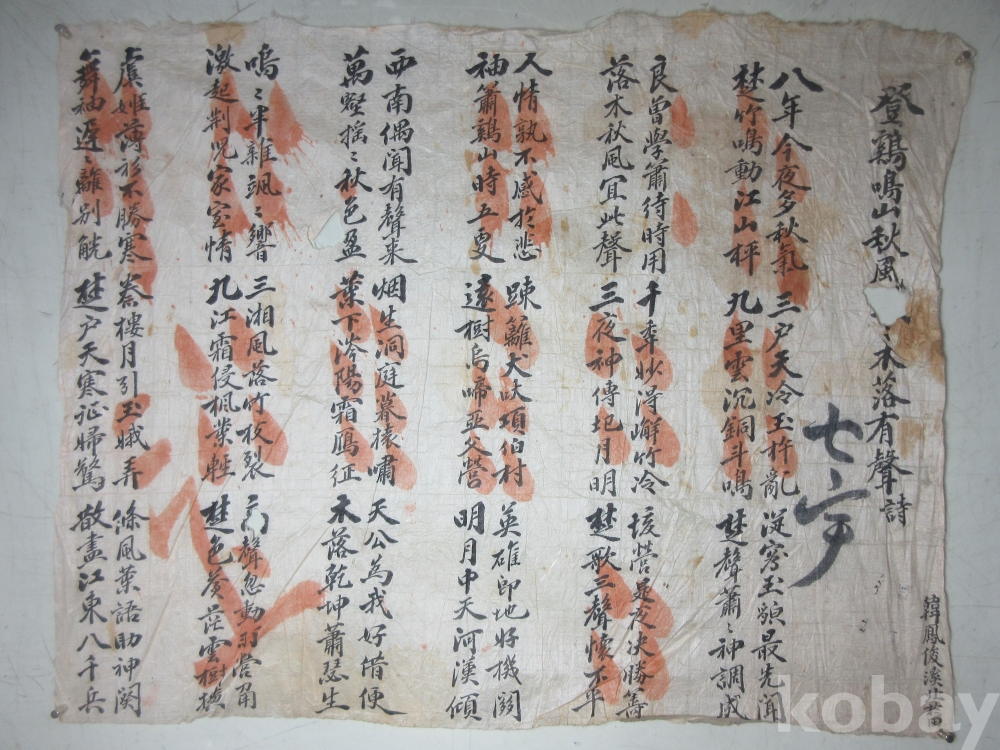 韓鳳俊
登鷄鳴山秋風 木落有聲詩
八年今夜多秋氣 三戶天冷玉杵亂 窓玉額最先聞
楚竹鳴動江山枰 九里雲沉銅斗鳴 楚聲蕭〻神調成
良曾學簫待時用 千年妙得嶰竹冷 垓營是夜決勝籌
落木秋風宜此聲 三夜神傳圯月明 楚歌三聲懷不平
人情孰不感於悲 踈籬犬吠項伯村 英雄即地好機關
袖簫鷄山時五更 遠樹烏啼亞父營 明月中天河漢傾
西南偶聞有聲來 烟生洞庭暮猿嘯 天公為我好借便
萬壑搖〻秋色盈 葉下涔陽霜鴈征 木落乾坤蕭瑟生
嗚〻半雜颯〻響 三湘風落竹枝裂 商聲忽動羽營
激起荆児家室情 九江霜侵楓葉輕 楚色蒼茫雲樹橫
虞姬薄衫不勝寒 樓月引玉娥弄 條風葉語助神闋
舞袖遲〻離別觥 楚戶天寒征婦驚 散盡江東八千兵
七